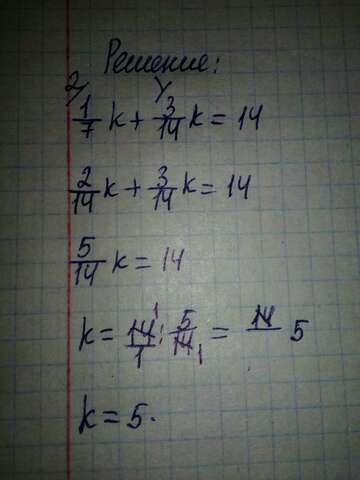 Решение:
2/ 1/7 k + 3/14 k = 14
2/14 k + 3/14 k = 14
5/14 k = 14
k = 14/1 : 5/14 = 14 5
k = 5.